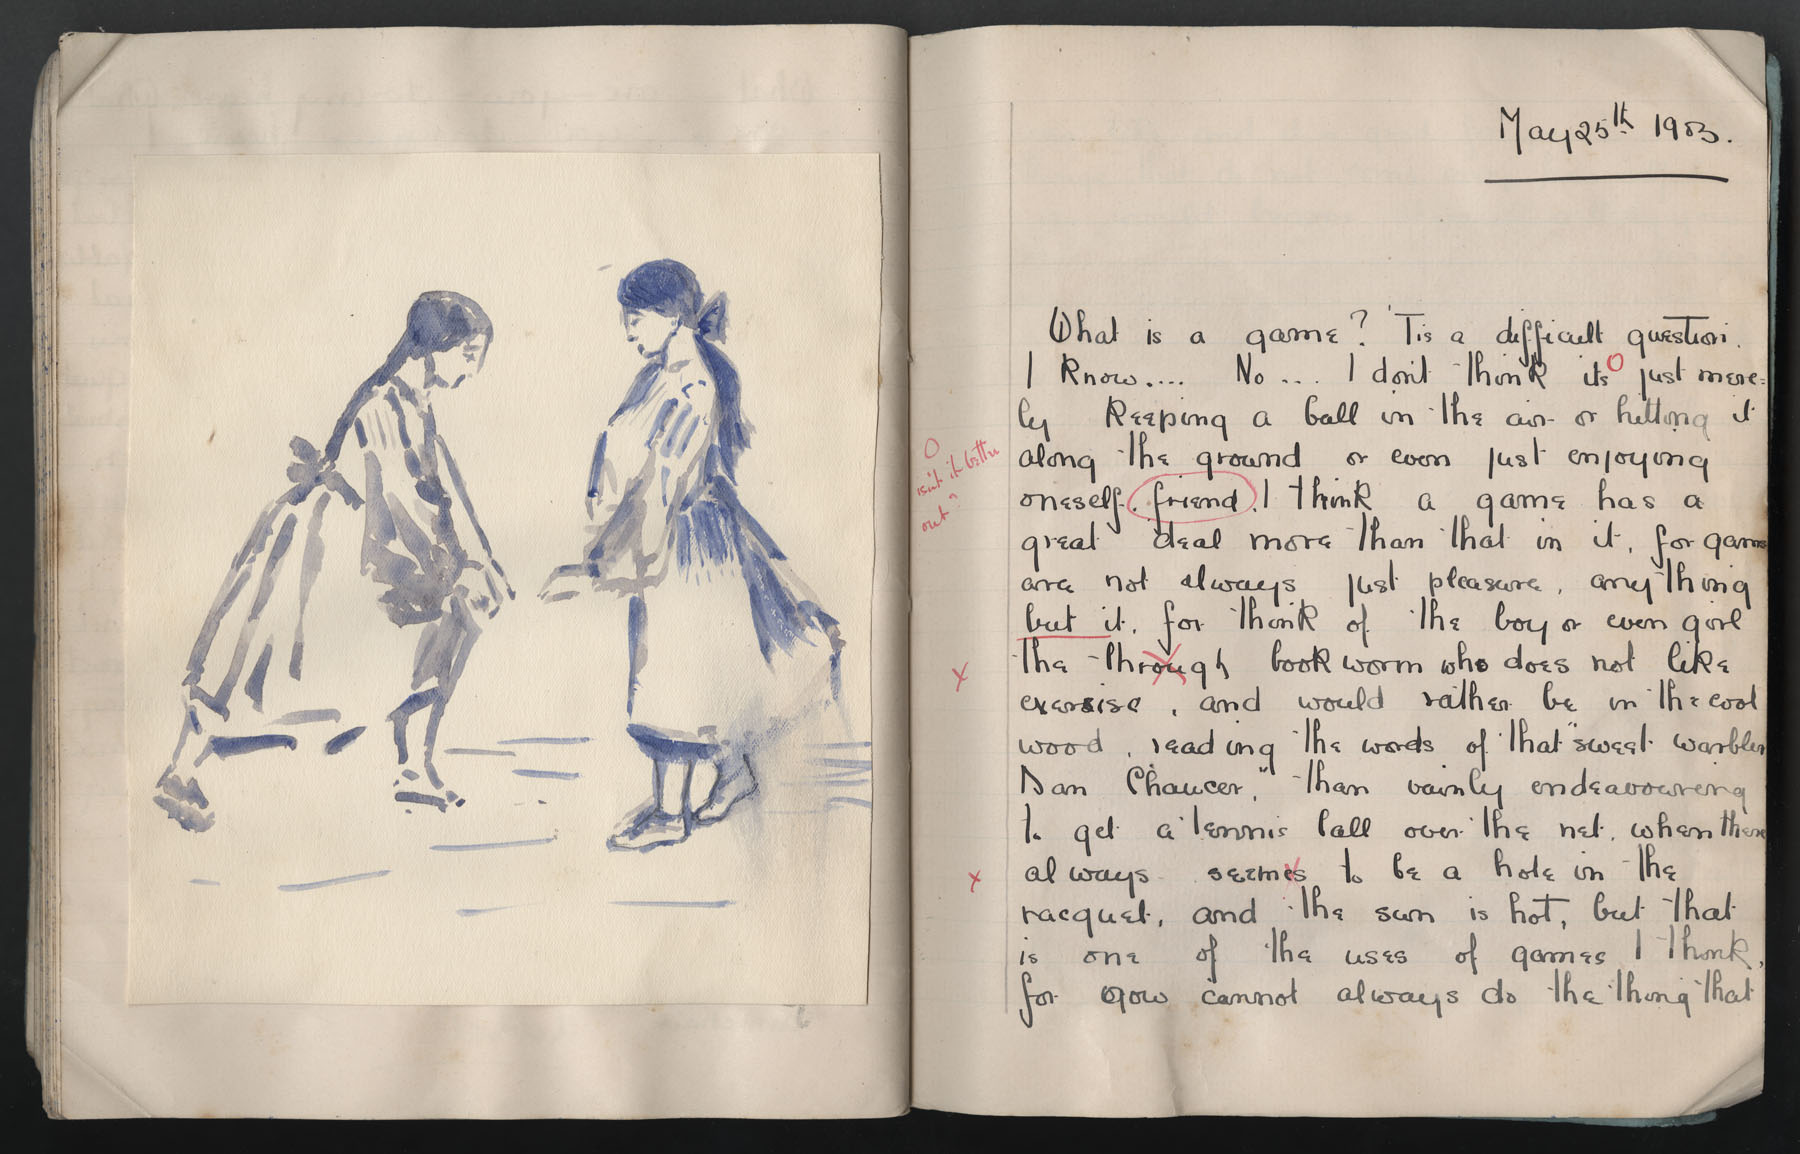 May 25th 1903.
What is a game? 'Tis a difficult question.
I know.... No.... I don't think its just mere=
ly keeping a ball in the air or hitting it
along the ground or even just enjoying
oneself. friend. I think a game has a
great deal more than that in it, for games
are not always just pleasure, anything
but it, for think of the boy or even girl
the through book worm who does not like
exersise, and would rather be in the cool
wood, reading the words of that "sweet warbler
Dan Chaucer," than vainly endeavouring
to get a tennis ball over the net, when there
always seemes to be a hole in the
racquet, and the sun is hot, but that
is one of the uses of games I think,
for you cannot always do the thing that
O
isn't it better
out?
O
x
x